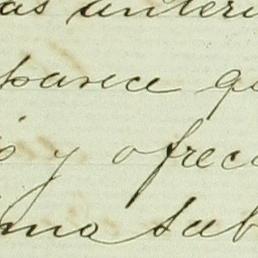 as anteri
parece qu
y ofreci
ma sub